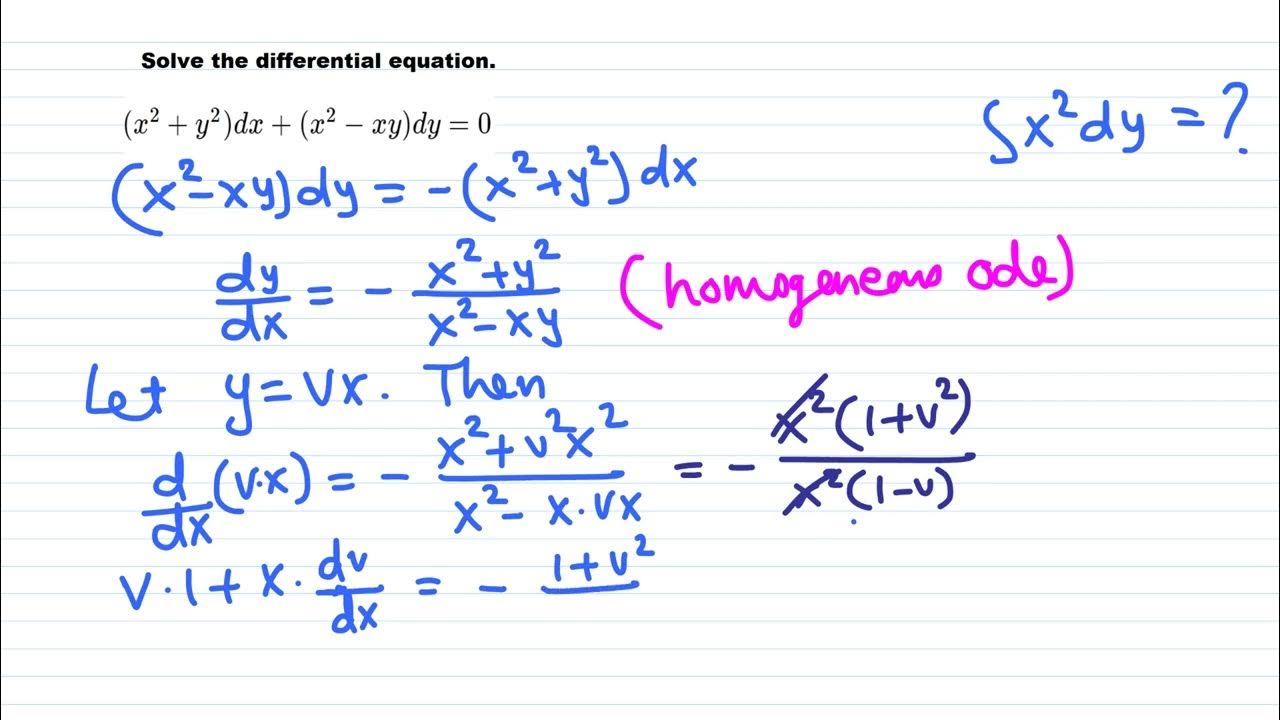 Solve the differential equation.
(x² + y²)dx + (x² − xy)dy = 0
∫x²dy = ?
(x²-xy)dy = -(x²+y²)dx
dy/dx = - (x²+y²)/(x²-xy) (homogeneous ode)
Let y=vx. Then
d/dx (v·x) = - (x²+v²x²)/(x²- x·vx) = - (x²(1+v²))/(x²(1-v))
v·1+x·dv/dx = - 1+v²